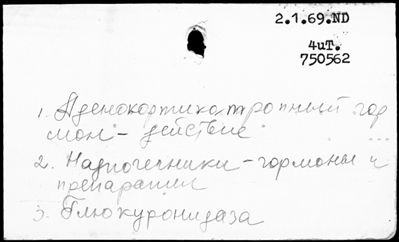 2.1.69.ND
4иТ.
750562
1. Аденокортикотропный гор
мон - действие
2. Надпочечники - гормоны и
препараты
3. Глюкуронидаза